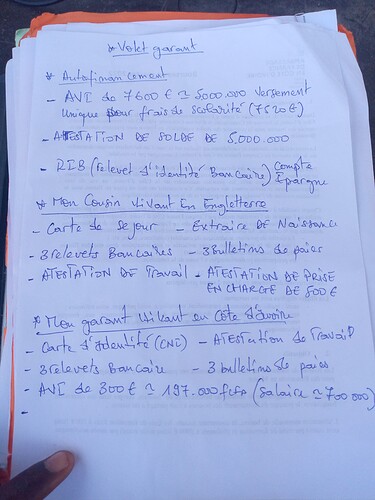 * Volet garant
* Autofinancement
- AVI de 7600 € ≃ 5000.000 versement
unique pour frais de scolarité (7620€)
- ATTESTATION DE SOLDE DE 5.000.000
- RIB (relevet d'identité Bancaire) Compte
Epargne
* Mon Cousin Vivant En Engletterre
- Carte de sejour - Extraire de Naissance
- 3 relevets Bancaires - 3 bulletins de paies
- ATESTATION DE Travail - ATESTATION DE PRISE
EN CHARGE DE 500 €
* Mon garant Vivant en Côte d'ivoire
- Carte d'identité (CNI) - ATestation de Travail
- 3 relevets Bancaire - 3 bulletins de paies
- AVI de 300 € ≃ 197.000 fcfa (Salaire ≃ 700 000)
-